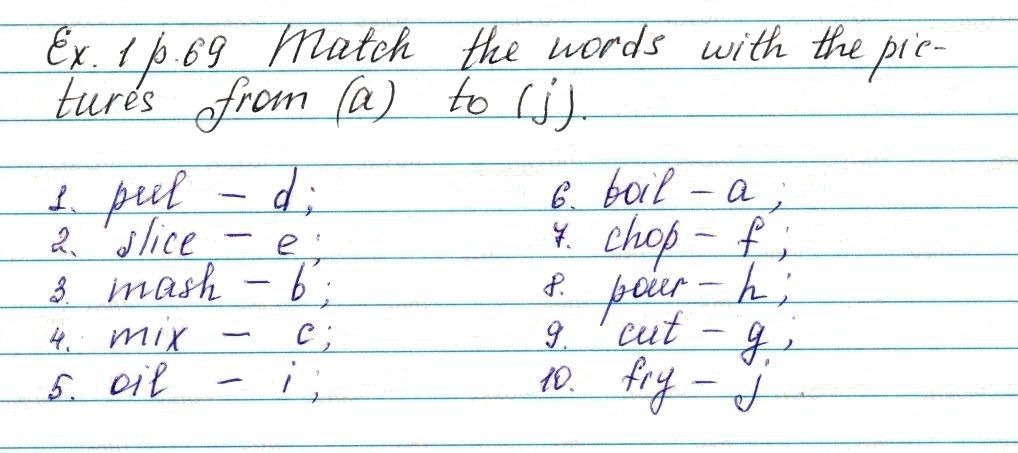 Ex. 1 p. 69 Match the words with the pic-
tures from (a) to (j).
1. peel - d;
2. slice - e;
3. mash - b;
4. mix - c;
5. oil - i;
6. boil - a;
7. chop - f;
8. pour - h;
9. cut - g;
10. fry - j